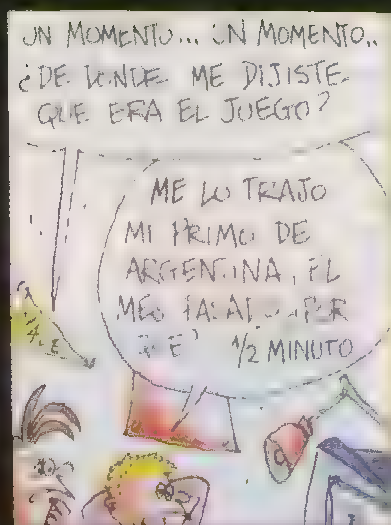 UN MOMENTO... UN MOMENTO..
¿DE DONDE ME DIJISTE
QUE ERA EL JUEGO?
ME LO TRAJO
MI PRIMO DE
ARGENTINA, EL
MES PASADO.. POR
1/2 MINUTO